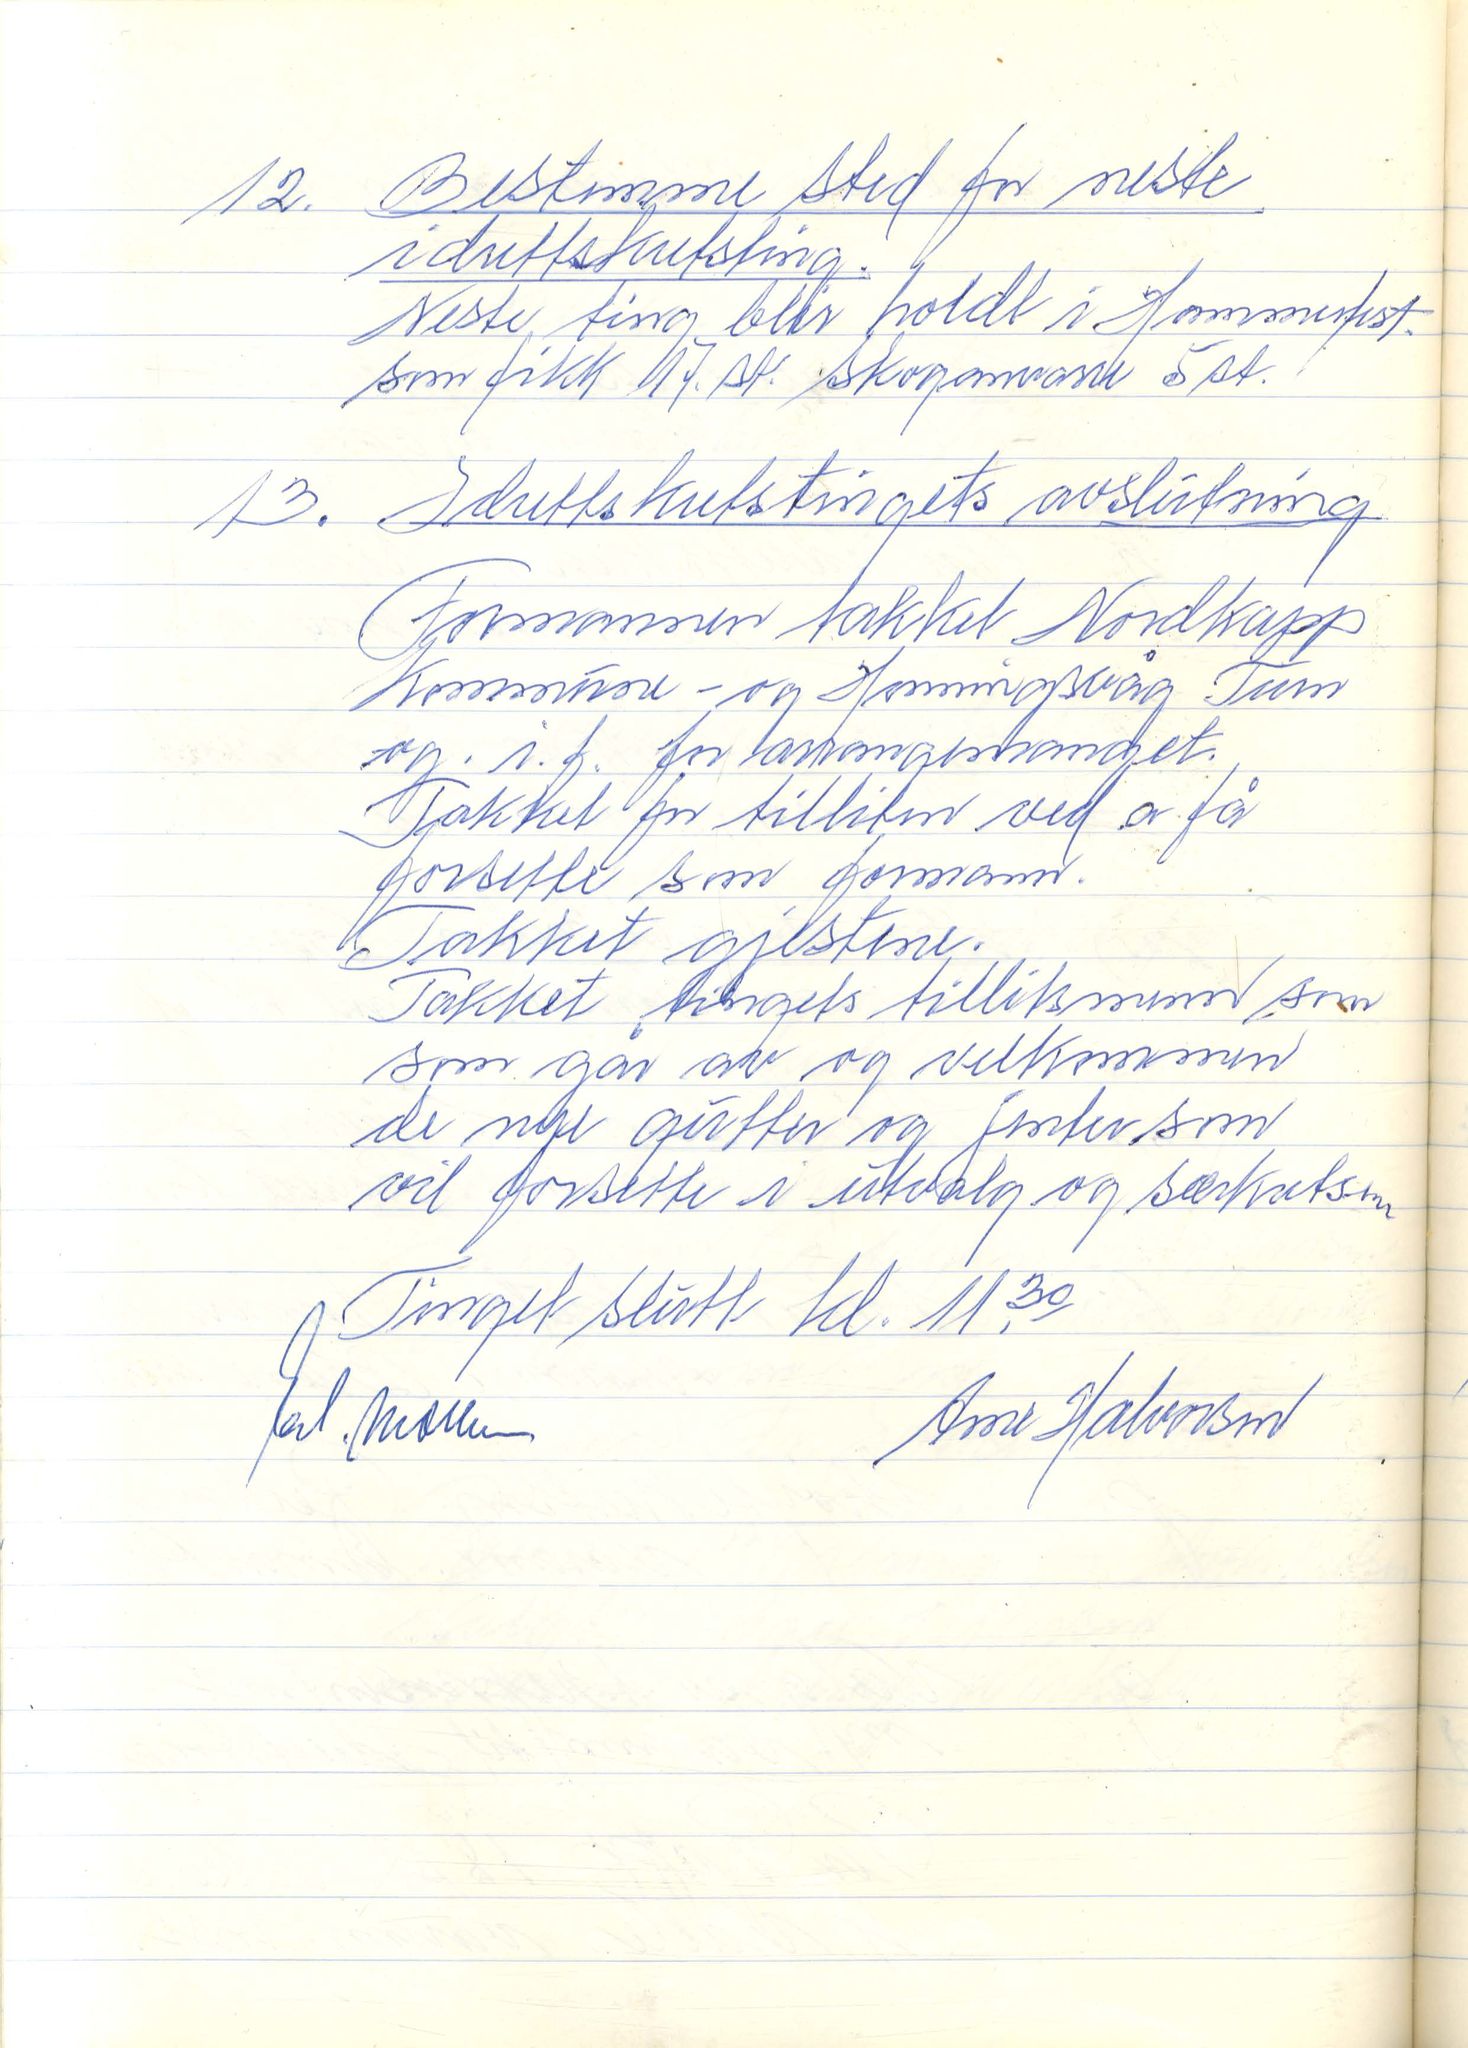 12. Bestemme sted for neste
idrettskretsting.
Neste ting blir holdt i Hammerfest.
som fikk 17. st. Skoganvarre 5 st.
13. Idrettskretstingets avslutning
Formannen takket Nordkapp
Kommune - og Honningsvåg Turn
og. i. f. for arrangemanget.
Takket for tilliten ved a få
forsette som formann.
Takket gjestene.
Takket tingets tillitsmenn som
som går av og velkommen
de nye gutter og jenter som
vil forsette i utvalg og særkretsen
Tinget slutt kl. 11.30
Arne Halvorsen